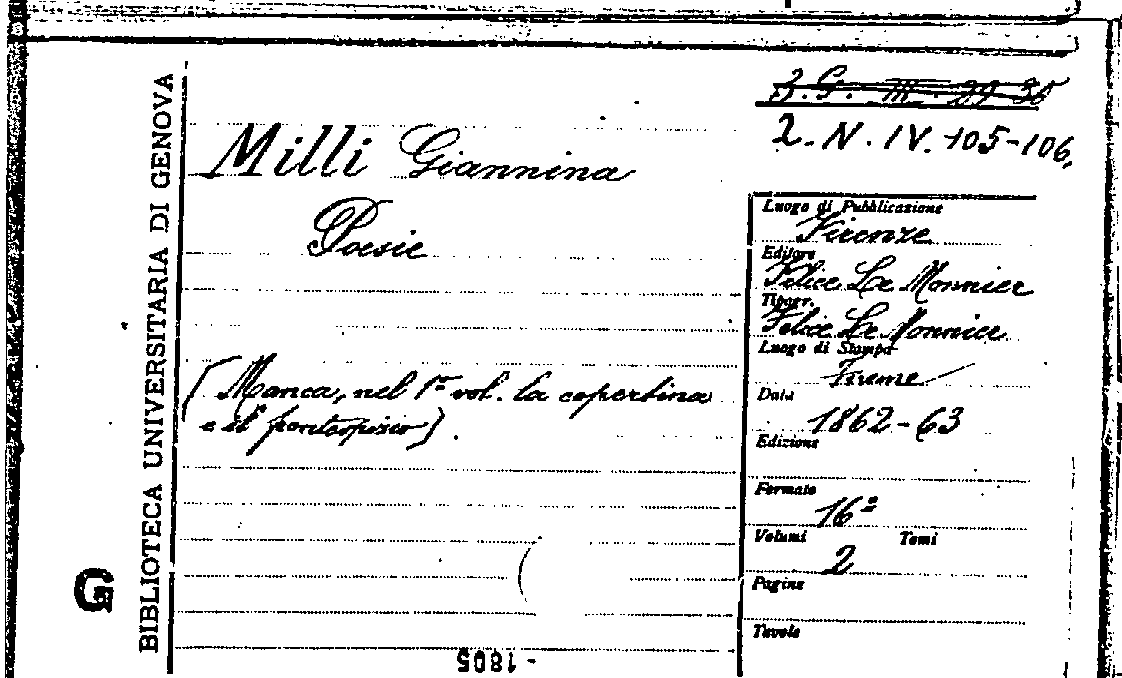 3. G. III. 29-35
2. N. IV. 105-106.
BIBLIOTECA UNIVERSITARIA DI GENOVA
G
Milli Giannina
Poesie
(Manca, nel 1º vol. la copertina
e il frontespizio).
Luogo di Pubblicazione
Firenze
Editore
Felice Le Monnier
Tipogr.
Felice Le Monnier
Luogo di Stampa
Firenze
Data
1862-63
Edizione
Formato
16º
Volumi Tomi
2
Pagine
Tavole
- 1805